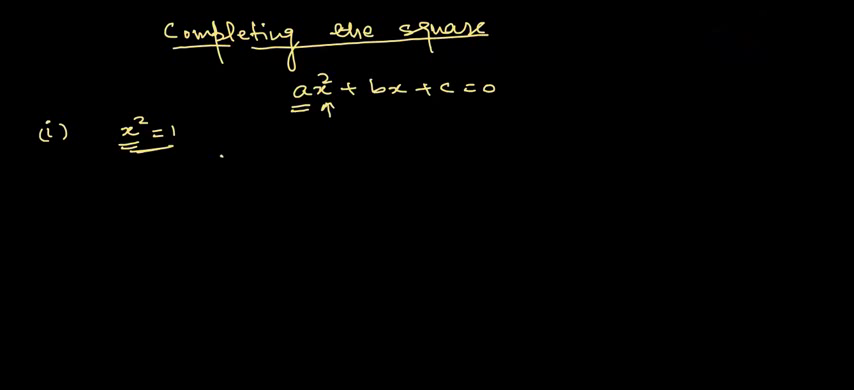 Completing the square
ax² + bx + c = 0
(i) x² = 1